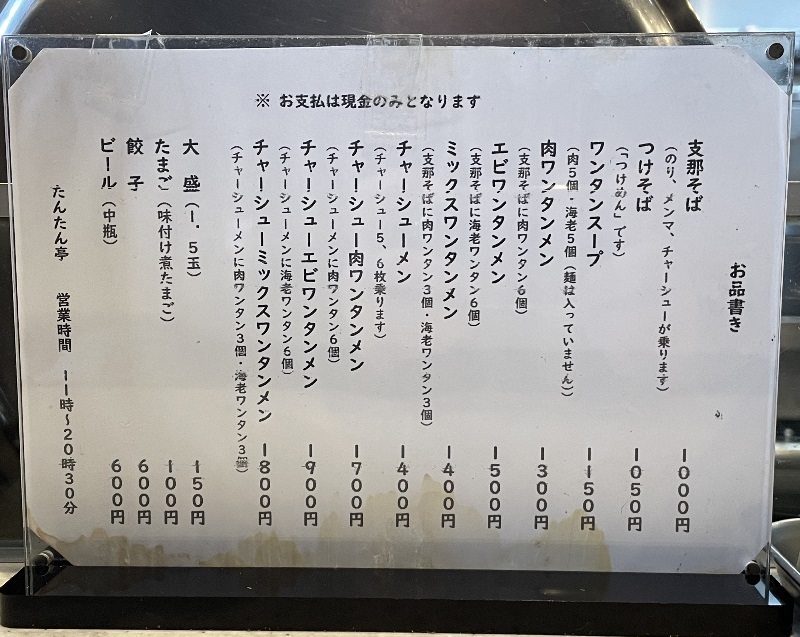 ※ お支払は現金のみとなります
お品書き
支那そば 1000円
(のり、メンマ、チャーシューが乗ります)
つけそば 1050円
(「つけめん」です)
ワンタンスープ 1150円
(肉5個・海老5個(麺は入っていません))
肉ワンタンメン 1300円
(支那そばに肉ワンタン6個)
エビワンタンメン 1500円
(支那そばに海老ワンタン6個)
ミックスワンタンメン 1400円
(支那そばに肉ワンタン3個・海老ワンタン3個)
チャーシューメン 1400円
(チャーシュー5、6枚乗ります)
チャーシュー肉ワンタンメン 1700円
(チャーシューメンに肉ワンタン6個)
チャーシューエビワンタンメン 1900円
(チャーシューメンに海老ワンタン6個)
チャーシューミックスワンタンメン 1800円
(チャーシューメンに肉ワンタン3個・海老ワンタン3個)
大 盛(1.5玉) 150円
たまご(味付け煮たまご) 100円
餃 子 600円
ビール(中瓶) 600円
たんたん亭 営業時間 11時~20時30分